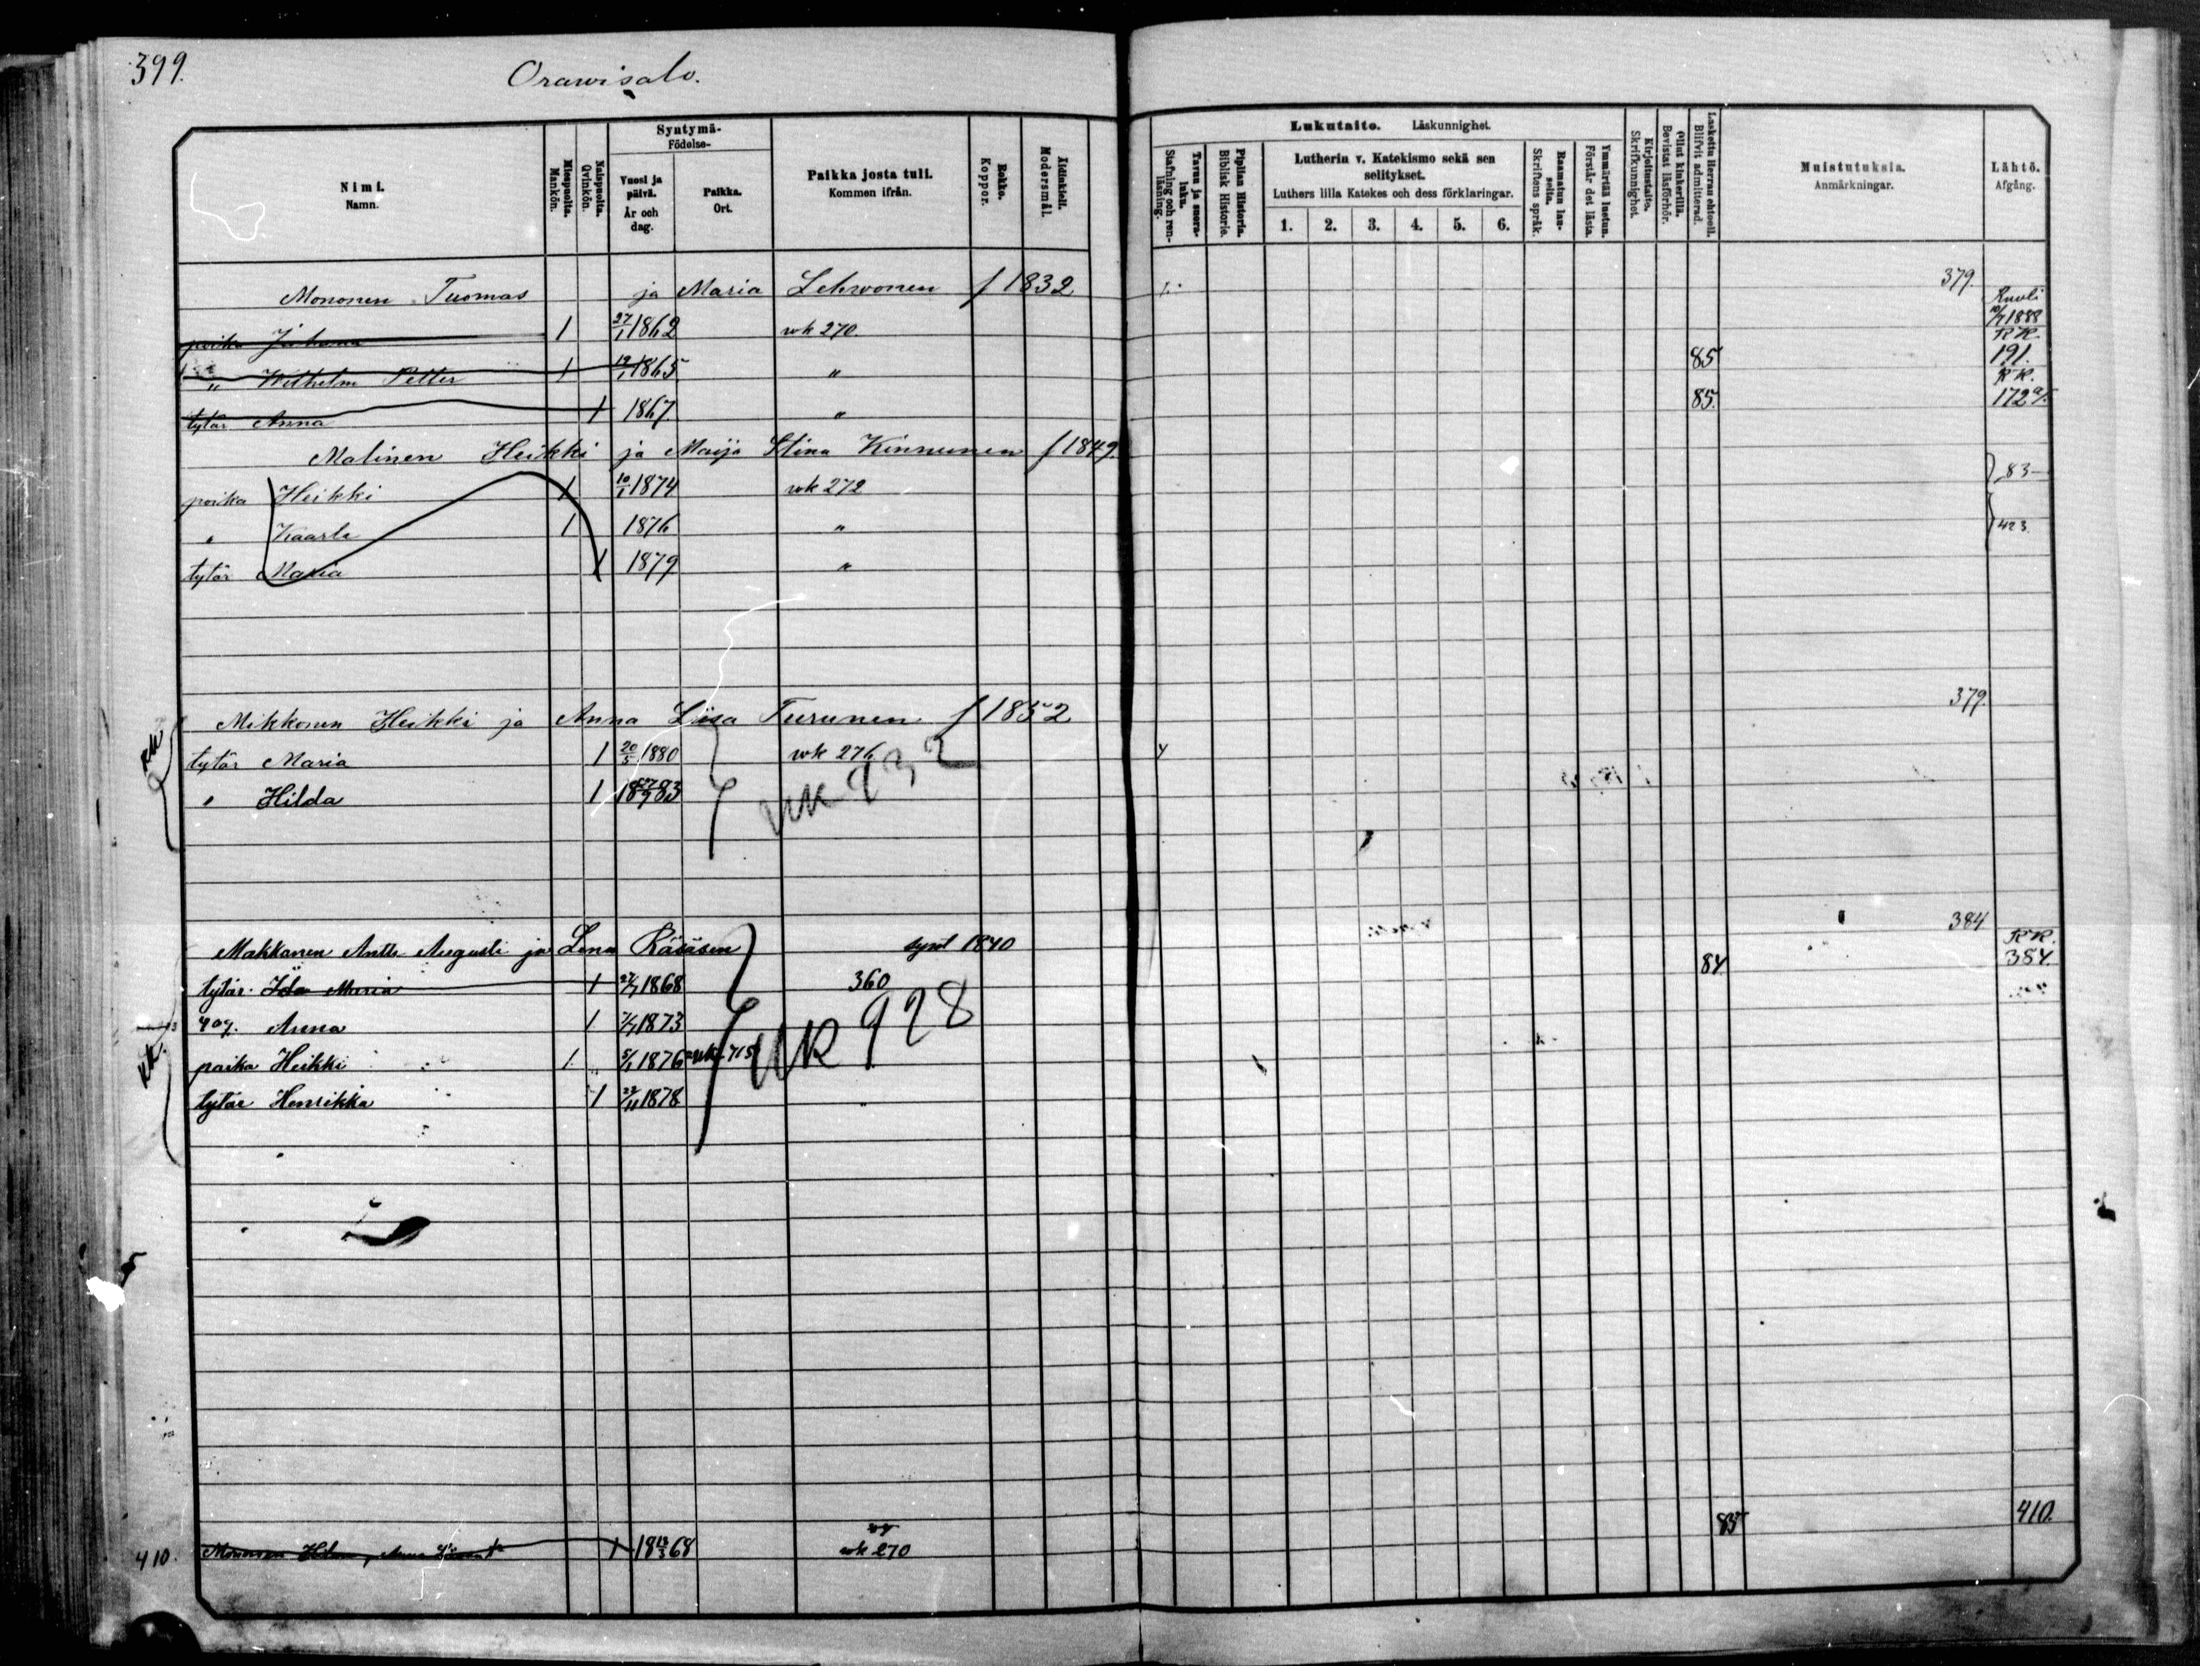 399.
Orawisalo.
Nimi. Namn.
Miespuolta. Mankön.
Naispuolta. Qvinkön.
Syntymä- Födelse-
Vuosi ja päivä. År och dag.
Paikka. Ort.
Paikka josta tuli. Kommen ifrån.
Rokko. Koppor.
Äidinkieli. Modersmål.
Lukutaito. Läskunnighet.
Tavau ja suora-luku. Stafning och ren-läsning.
Piplian Historia. Biblisk Historie.
Lutherin v. Katekismo sekä sen selitykset.
Luthers lilla Katekes och dess förklaringar.
1. 2. 3. 4. 5. 6.
Raamatun lau-seita. Skriftens språk.
Ymmärtää luetun. Förstår det lästa.
Kirjoitustaito. Skrifkunnighet.
Ollut kinkerillä. Bevistat läsförhör.
Laskettu Herran ehtooll. Blifvit admitterad.
Muistutuksia. Anmärkningar.
Lähtö. Afgång.
Mononen Tuomas ja Maria Lehwonen f 1832 379.
poika Juhana 1 27/1 1862 wk 270. Ruoli 10/7 1888
" Wilhelm Petter 1 19/1 1865 " 85 RK 191.
tytär Anna 1 1867 " 85. RK. 172
Malinen Heikki ja Maija Stina Kinnunen f 1849.
poika Heikki 1 10/1 1874 wk 272 83
" Kaarle 1 1876 " 423
tytär Maria 1 1879 "
Mikkonen Heikki ja Anna Liisa Turunen f 1852 379.
RK
tytär Maria 1 20/5 1880 wk 276
" Hilda 1 1883
UK 932
Makkonen Antti Augusti ja Lena Räsäsen synt 1840 384
tytär Ida Maria 1 27/7 1868 360 84 RK. 384
409. Anna 1 1873
RK.
poika Heikki 1 5/1 1876 UK 715
UK 928
tytär Henrikka 1 22/11 1878 "
410. Mononen 1 18 12/3 68 wk 270 85 410.